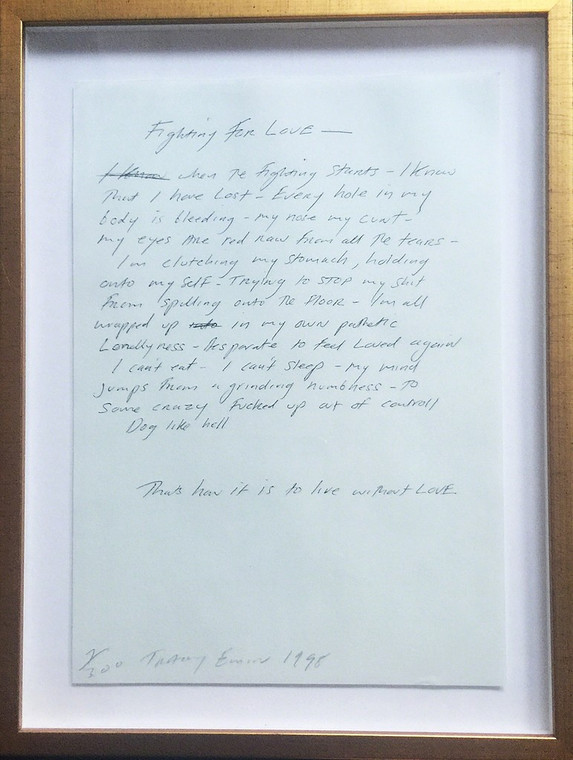 Fighting For LOVE —
I Know when The Fighting Starts - I Know
That I have Lost - Every hole in my
body is bleeding - my nose my cunt -
my eyes Are red raw From all The tears -
I'm clutching my stomach, holding
onto my Self - Trying to STOP my shit
From spilling onto The Floor - I'm all
wrapped up in my own pathetic
Lonellyness - Desparate to feel Loved again
I can't eat - I can't sleep - my mind
jumps From a grinding numbness - To
Some crazy Fucked up out of controll
Dog like hell
Thats how it is to live without LOVE
/300 Tracey Emin 1998